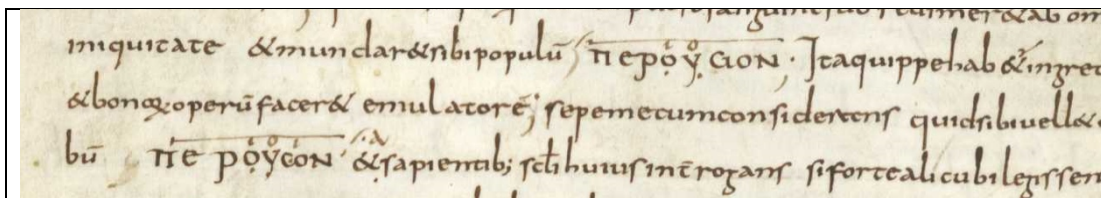 iniquitate &mundar&sibipopulū ΠΕΡΟΥCΙΟΝ · Itaquippehab& ingrec
&bonoꝝ operū facer& emulatorē; sepemecumconsiderans quidsibivell&
bū ΠΕ ΡΟΥCΟΝ &sapientib; scl̄i huius int̄rogans siforte alicubi legissen